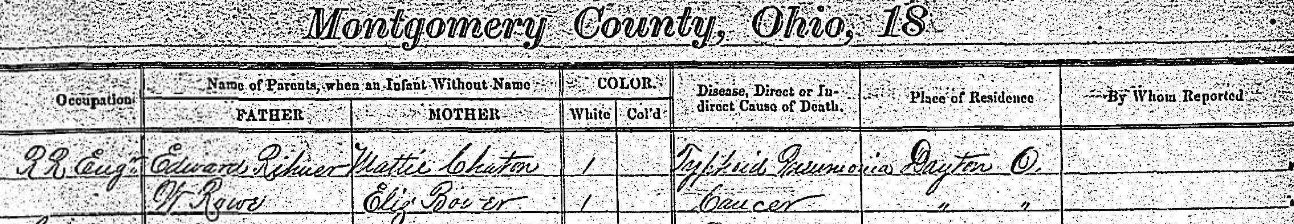 Montgomery County, Ohio, 18
Occupation Name of Parents, when an Infant Without Name COLOR. Disease, Direct or In-direct Cause of Death. Place of Residence By Whom Reported
FATHER MOTHER White Col'd
R R Eng'r Edward Mattie 1 Typhoid Pneumonia Dayton O.
W Rowe Eliz Bower 1 Cancer " "